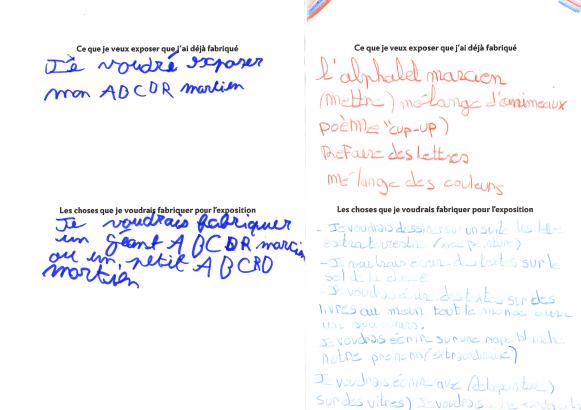 Ce que je veux exposer que j'ai déjà fabriqué
Je voudré exposer
mon ABCDR martien
Les choses que je voudrais fabriquer pour l'exposition
Je voudrais fabriquer
un géant ABCDR marcien
ou un petit ABCRD
martien
Ce que je veux exposer que j'ai déjà fabriqué
l'alphabet marcien
(mettre) mélange d'animeaux
poème "cup-up")
Refaire des lettres
mélange des couleurs
Les choses que je voudrais fabriquer pour l'exposition
- Je voudrais dessiner sur un les lettres
- Je voudrais écrire des textes sur le
sol de la
Je voudrais des textes sur des
livres au moin tout le monde
un souvenirs.
Je voudrais écrir sur une nape blanche
notre prenom/extraordinaire)
Je voudrais écrir avec
sur des vitres) Je voudrais